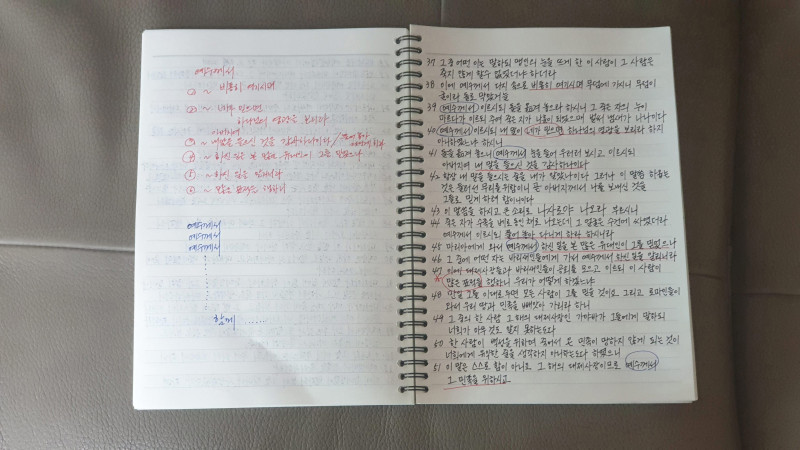 예수께서
① ~ 비통히 여기시며
② ~ 네가 믿으면
하나님의 영광을 보리라
이르시되
③ ~ 내 말을 들으신 것을 감사하나이다
④ ~ 하신 일을 본 많은 유대인이 그를 믿었으나
⑤ ~ 하신 일을 알리니라
⑥ ~ 많은 표적을 행하니
예수께서
예수께서
예수께서
함께 ......
37 그 중 어떤 이는 말하되 맹인의 눈을 뜨게 한 이 사람이 그 사람은
죽지 않게 할 수 없었더냐 하더라
38 이에 예수께서 다시 속으로 비통히 여기시며 무덤에 가시니 무덤이
굴이라 돌로 막았거늘
39 예수께서 이르시되 돌을 옮겨 놓으라 하시니 그 죽은 자의 누이
마르다가 이르되 주여 죽은 지가 나흘이 되었으매 벌써 냄새가 나나이다
40 예수께서 이르시되 내 말이 네가 믿으면 하나님의 영광을 보리라 하지
아니하였느냐 하시니
41 돌을 옮겨 놓으니 예수께서 눈을 들어 우러러 보시고 이르시되
아버지여 내 말을 들으신 것을 감사하나이다
42 항상 내 말을 들으시는 줄을 내가 알았나이다 그러나 이 말씀 하옵는
것은 둘러선 무리를 위함이니 곧 아버지께서 나를 보내신 것을
그들로 믿게 하려 함이니이다
43 이 말씀을 하시고 큰 소리로 나사로야 나오라 부르시니
44 죽은 자가 수족을 베로 동인 채로 나오는데 그 얼굴은 수건에 싸였더라
예수께서 이르시되 풀어 놓아 다니게 하라 하시니라
45 마리아에게 와서 예수께서 하신 일을 본 많은 유대인이 그를 믿었으나
46 그 중에 어떤 자는 바리새인들에게 가서 예수께서 하신 일을 알리니라
47 이에 대제사장들과 바리새인들이 공회를 모으고 이르되 이 사람이
많은 표적을 행하니 우리가 어떻게 하겠느냐
48 만일 그를 이대로 두면 모든 사람이 그를 믿을 것이요 그리고 로마인들이
와서 우리 땅과 민족을 빼앗아 가리라 하니
49 그 중의 한 사람 그 해의 대제사장인 가야바가 그들에게 말하되
너희가 아무것도 알지 못하는도다
50 한 사람이 백성을 위하여 죽어서 온 민족이 망하지 않게 되는 것이
너희에게 유익한 줄을 생각하지 아니하는도다 하였으니
51 이 말은 스스로 함이 아니요 그 해의 대제사장이므로 예수께서
그 민족을 위하시고